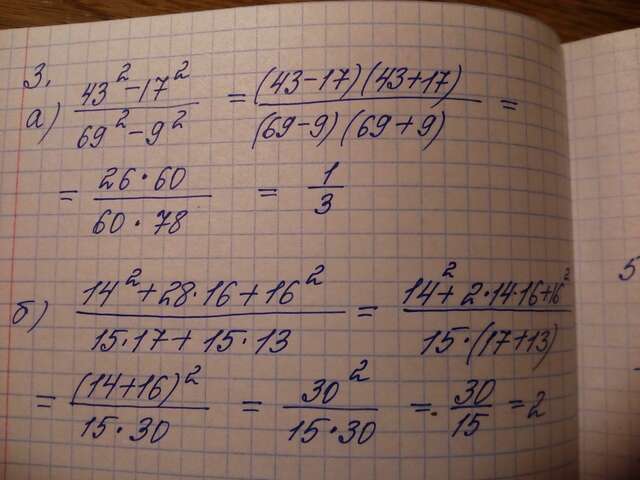 3.
а) (43² - 17²)/(69² - 9²) = ((43-17)(43+17))/((69-9)(69+9)) =
= (26·60)/(60·78) = 1/3
б) (14² + 28·16 + 16²)/(15·17 + 15·13) = (14² + 2·14·16 + 16²)/(15·(17+13))
= (14+16)²/(15·30) = 30²/(15·30) = 30/15 = 2
5